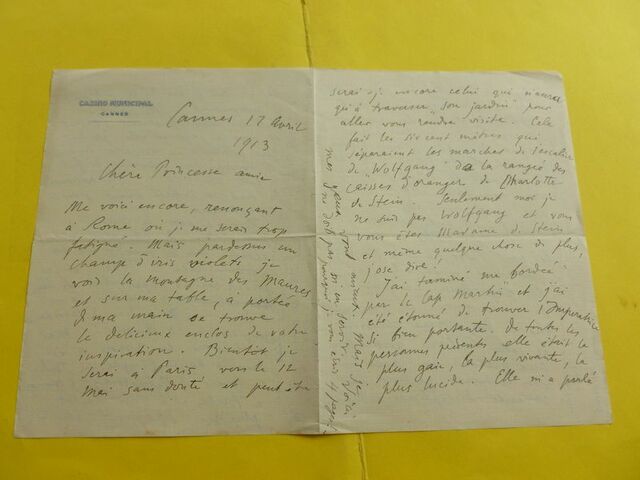 CASINO MUNICIPAL
CANNES
Cannes 17 avril
1913
Chère Princesse amie
Me voici encore, renonçant
à Rome où je me serai trop
fatigué. Mais pardessus un
champs d'iris violets je
vois la montagne des Maures
et sur ma table, a portée
de ma main se trouve
le delicieux enclos de votre
inspiration. Bientôt je
serai à Paris vers le 12
Mai sans doute et peut être
serai-je encore celui qui n'aurai
qu'à traverser "son jardin" pour
aller vous rendre visite. Cela
fait les six cent mètres qui
séparaient les marches de l'escalier
de "Wolfgang" de la rangée des
caisses d'oranger de Charlotte
de Stein. Seulement moi je
ne suis pas Wolfgang et vous
vous êtes Madame de Stein
et même quelque chose de plus,
j'ose dire!
J'ai terminé ma
par le Cap Martin et j'ai
été étonné de trouver l'Imperatrice
si bien portante. De toutes les
personnes présentes elle était la
plus gaie, la plus vivante, la
plus lucide. Elle m'a parlé
mes yeux vont mieux. Mais je
ne dois pas m'en servir. Voici
pourquoi je vous écris 4 pages!